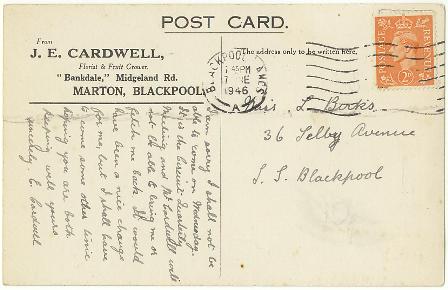 POST CARD.
From
J. E. CARDWELL,
Florist & Fruit Grower.
"Bankdale," Midgeland Rd.
MARTON, BLACKPOOL.
The address only to be written here.
BLACKPOOL
7.45PM
7
1946
A
POSTAGE REVENUE
2D
L. Books
36 Selby Avenue
S. S. Blackpool
I am sorry I shall not be
able to come on Wednesday.
It is the Circuit Quarterly
Meeting and Mr Cardwell will
not be able to bring me or
fetch me back. It would
have been a nice change
for me, but I shall have
to come some other time
Hoping you are both
keeping well yours
sincerely, E. Cardwell